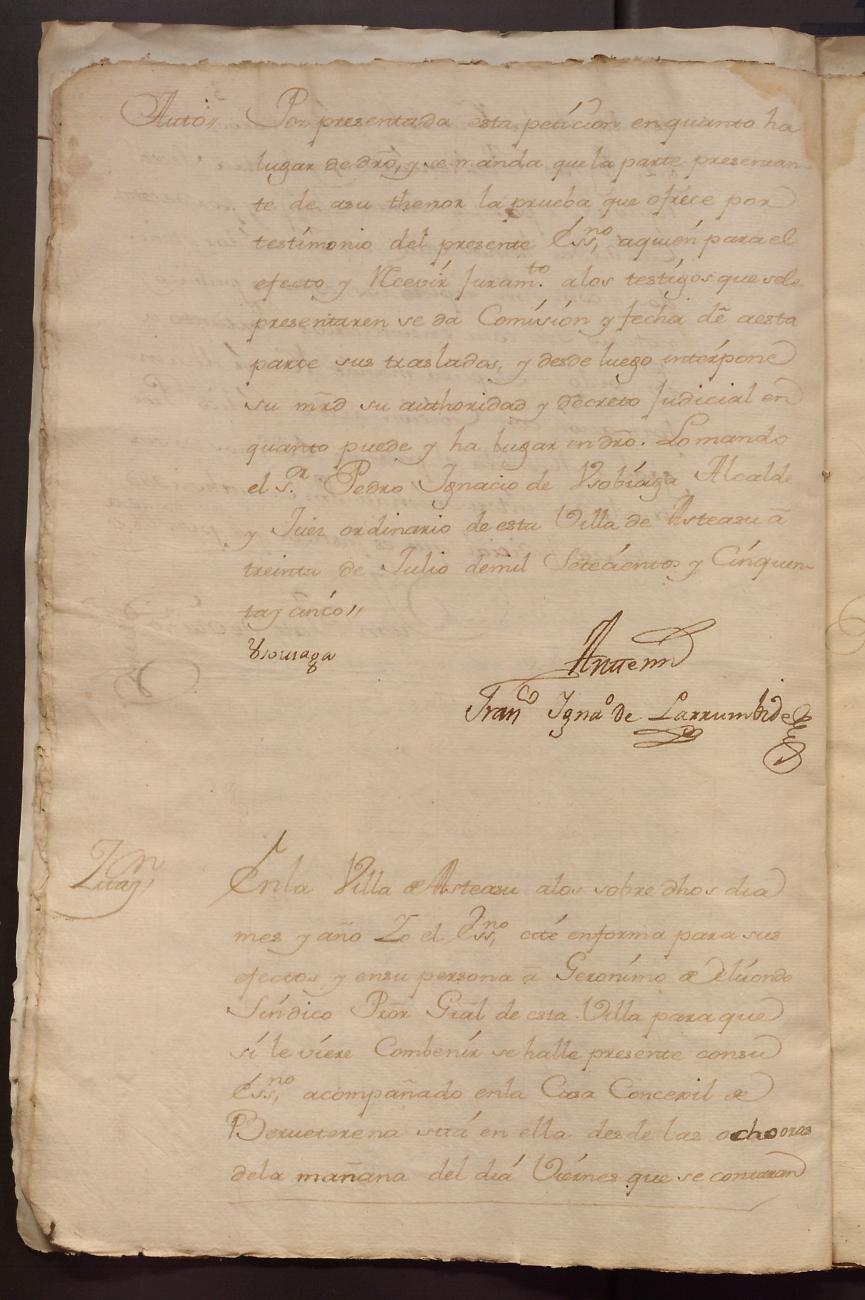 Auto,, Por presentada esta peticion en quanto ha
lugar de dro, y se manda que la parte presentan-
te de asu thenor la prueba que ofrece por
testimonio del presente Essno, aquien para el
efecto y Recevir Juramto. alos testigos que sele
presentaren se da Comision y fecha dê aesta
parte sus traslados, y desde luego interpone
su mrd su authoridad y decreto Judicial en
quanto puede y ha lugar en dro. Lo mando
el sor. Pedro Ignacio de Vsobiaga Alcalde
y Juez ordinario de esta Villa de Asteasu â
treinta de Julio demil Setecientos y Cinquen-
tay cinco,,
Antemi
Franco Ignao de Larrumbide
Zitaon
En la Villa de Asteasu alos sobre dhos dia
mes y año Yo el Essno, cité enforma para sus
efectos, y ensu persona â Geronimo de
Sindico Pror Gral de esta Villa para que
si le viere Combenir se halle presente consu
Essno, acompañado enla Casa Concexil de
Berueterena sita en ella desde las ocho oras
dela mañana del dia Viernes que se contaran